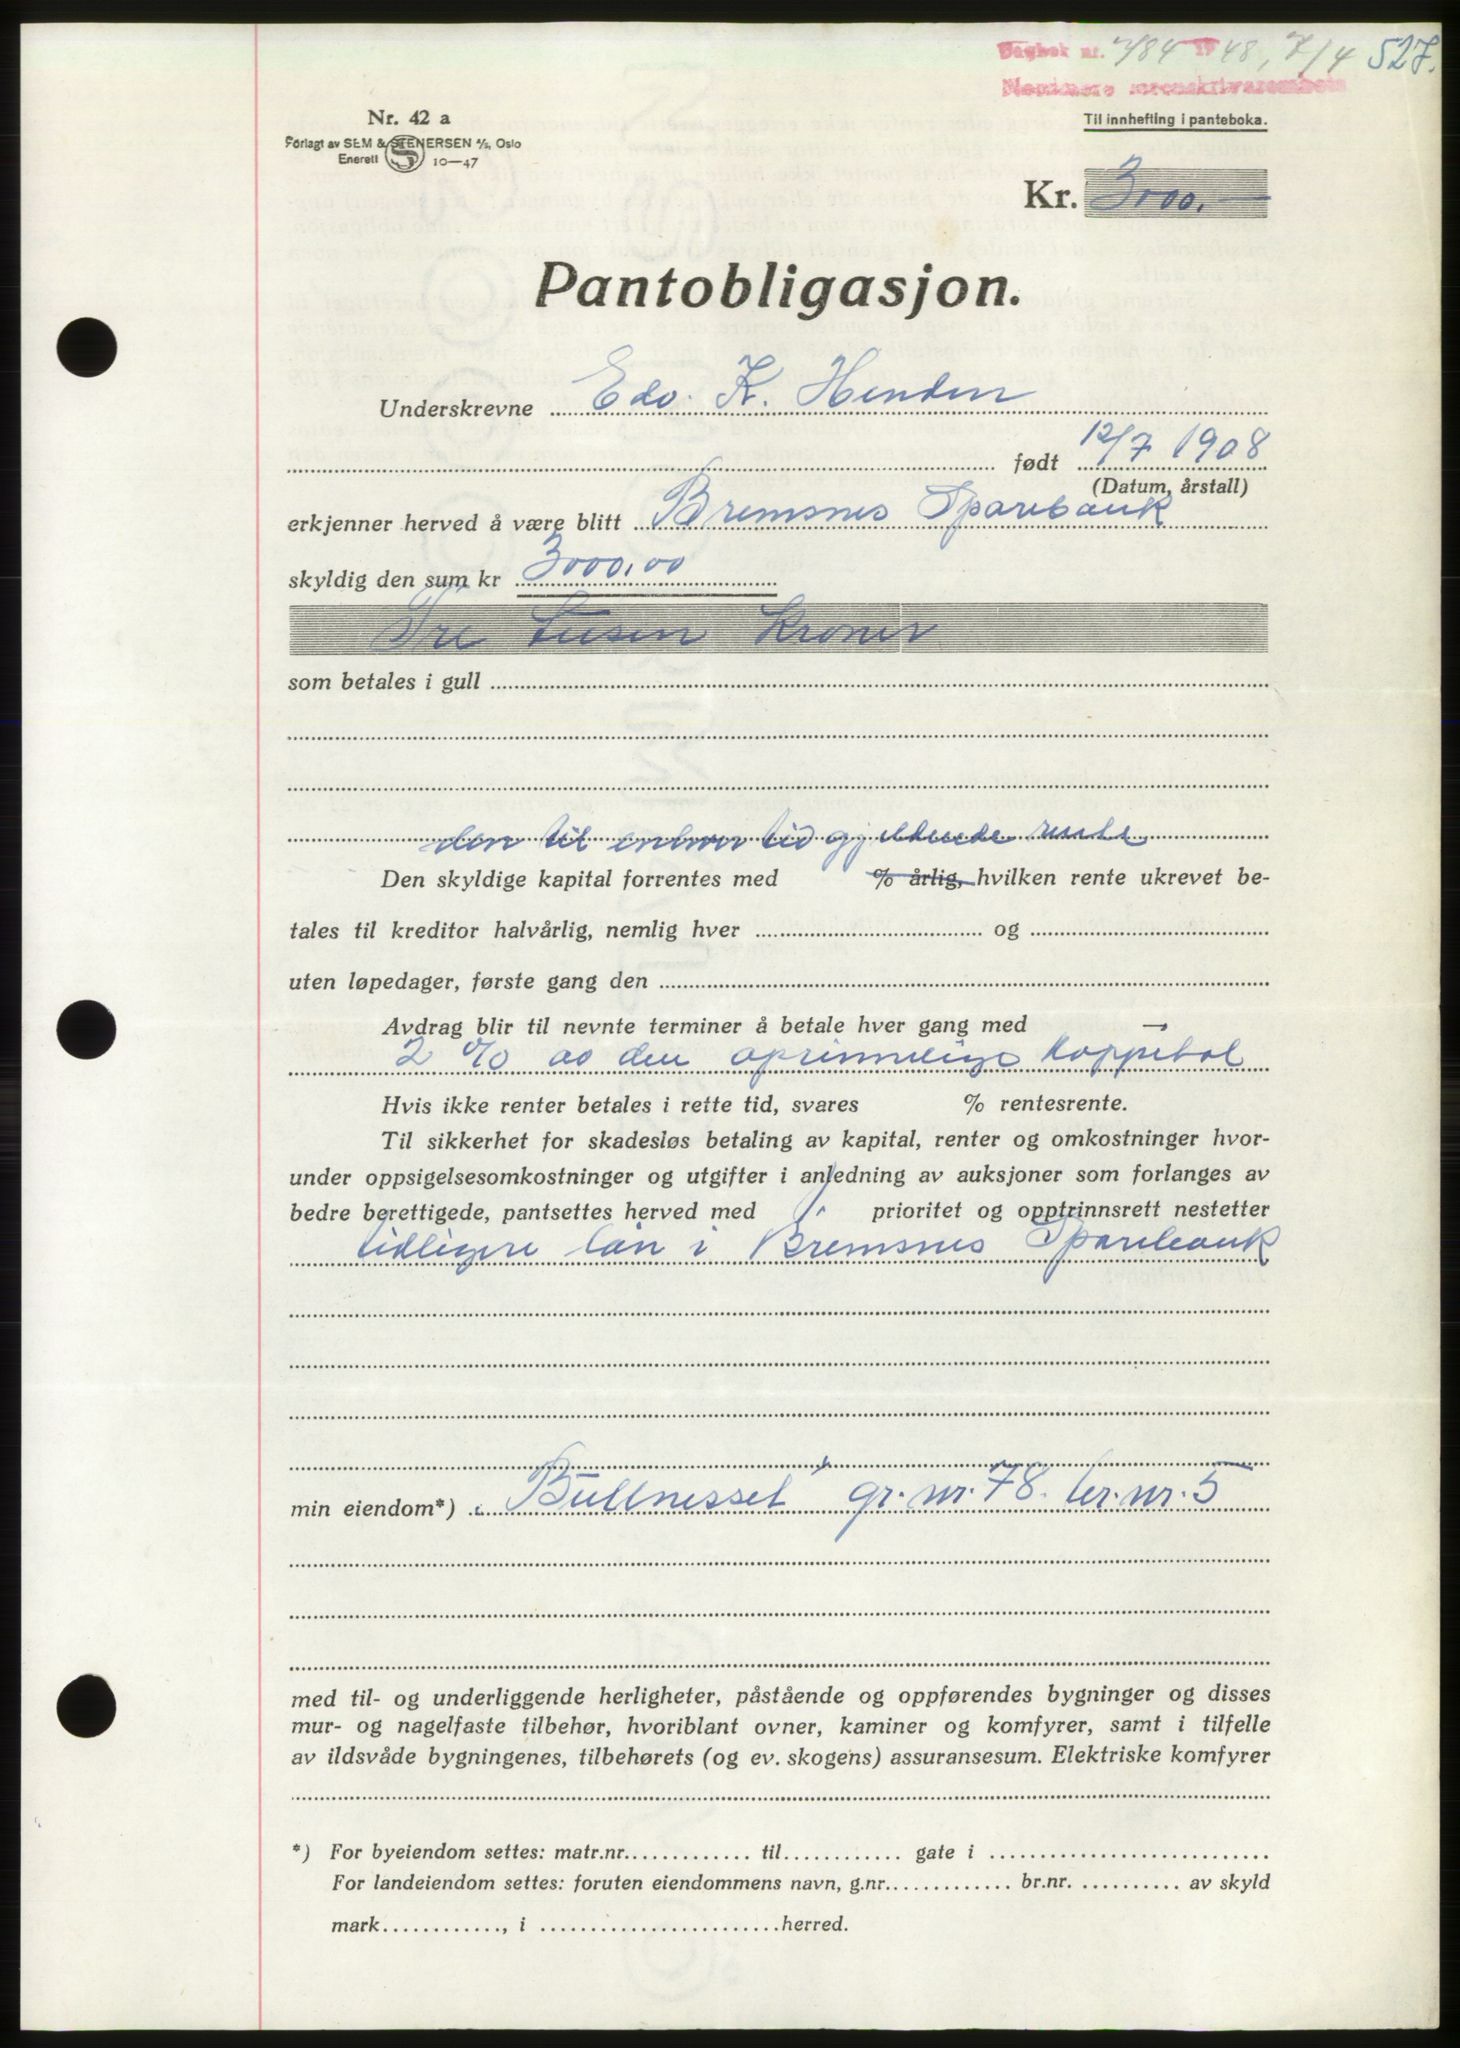 Dagbok nr. 784 1948, 7/4 527.
Nordmøre sorenskriverembete
Nr. 42 a
Forlagt av SEM & STENERSEN A/S, Oslo
Enerett 10—47
Til innhefting i panteboka.
Kr. 3000.—
Pantobligasjon.
Underskrevne Edv. K. Henden
født 12/7 1908
(Datum, årstall)
erkjenner herved å være blitt Bremsnes Sparebank
skyldig den sum kr 3000,00
Tre tusen kroner
som betales i gull
den til enhver tid gjeldende rente
Den skyldige kapital forrentes med % årlig, hvilken rente ukrevet be-
tales til kreditor halvårlig, nemlig hver og
uten løpedager, første gang den
Avdrag blir til nevnte terminer å betale hver gang med —
2 % av den oprinnelige kappital
Hvis ikke renter betales i rette tid, svares % rentesrente.
Til sikkerhet for skadesløs betaling av kapital, renter og omkostninger hvor-
under oppsigelsesomkostninger og utgifter i anledning av auksjoner som forlanges av
bedre berettigede, pantsettes herved med 1. prioritet og opptrinnsrett nestetter
tidligere lån i Bremsnes Sparebank
min eiendom*) „Bullnesset“ gr. nr. 78. br. nr. 5
med til- og underliggende herligheter, påstående og oppførendes bygninger og disses
mur- og nagelfaste tilbehør, hvoriblant ovner, kaminer og komfyrer, samt i tilfelle
av ildsvåde bygningenes, tilbehørets (og ev. skogens) assuransesum. Elektriske komfyrer
*) For byeiendom settes: matr.nr. til gate i
For landeiendom settes: foruten eiendommens navn, g.nr. br.nr. av skyld
mark , i herred.